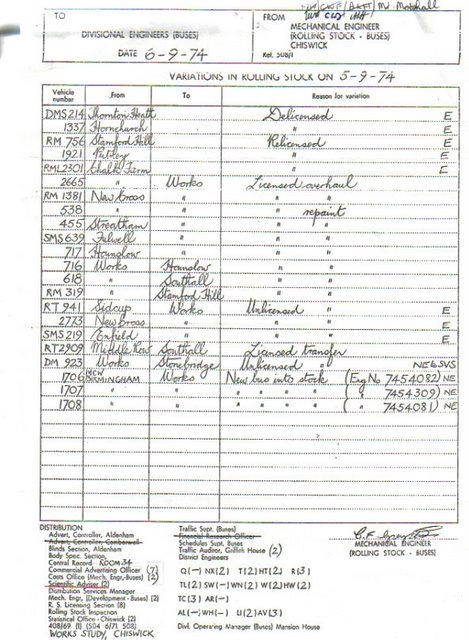 TO
DIVISIONAL ENGINEERS (BUSES)
DATE 6-9-74
FROM
MECHANICAL ENGINEER
(ROLLING STOCK - BUSES)
CHISWICK
Ref. 508/1
VARIATIONS IN ROLLING STOCK ON 5-9-74
Vehicle number From To Reason for variation
DMS 214 Thornton Heath Delicensed E
1337 Hornchurch " E
RM 756 Stamford Hill Relicensed E
1921 Putney " E
RML 2301 Chalk Farm " E
2665 " Works Licensed overhaul
RM 1381 New Cross " " "
538 " " " repaint
455 Streatham " " "
SMS 639 Fulwell " " "
717 Hounslow " " "
716 Works Hounslow " "
618 " Southall " "
RM 319 " Stamford Hill " "
RT 941 Sidcup Works Unlicensed " E
2773 New Cross " " " E
SMS 219 Enfield " " " E
RT 2909 Middle Row Southall Licensed transfer
DM 923 Works Stonebridge Unlicensed " NE6SVS
1706 MCW BIRMINGHAM Works New bus into stock (Eng No 7454082) NE
1707 " " " " " " ( " 7454309) NE
1708 " " " " " " ( " 7454081) NE
DISTRIBUTION
Advert, Controller, Aldenham
Advert, Controller, Camberwell
Blinds Section, Aldenham
Body Spec. Section,
Central Record ROOM 34
Commercial Advertising Officer (7)
Costs Office (Mech. Engr.-Buses) (2)
Scientific Adviser (2)
Distribution Services Manager
Mech. Engr. (Development - Buses) (2)
R. S. Licensing Section (8)
Rolling Stock Inspection
Statistical Office - Chiswick (2)
408/69 (1) (504 6/71 508)
WORKS STUDY, CHISWICK
Traffic Supt. (Buses)
Financial Research Officer
Schedules Supt. Buses
Traffic Auditor, Griffith House (2)
District Engineers
Q(-) NX(2) T(2) HT(2) R(3)
TL(2) SW(-) WN(2) W(2) HW(2)
TC(3) AR(-)
AL(-) WH(-) U(2) AV(3)
Divl. Operating Manager (Buses) Mansion House
MECHANICAL ENGINEER
(ROLLING STOCK - BUSES)